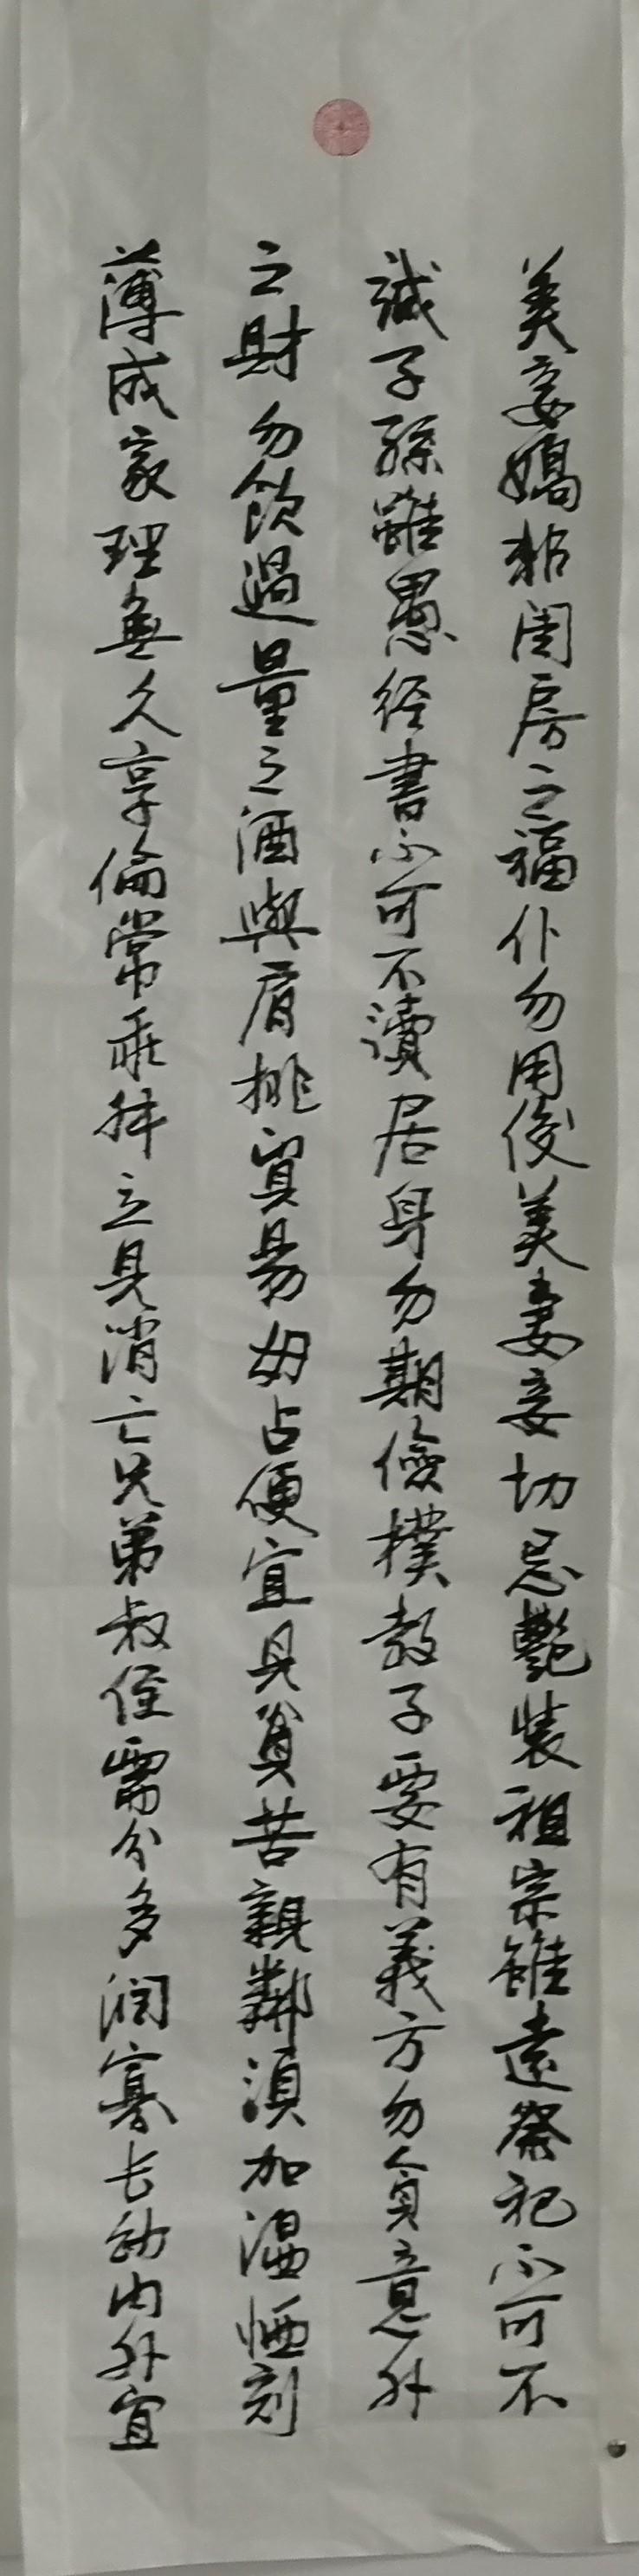 美妾嬌粧閨房之福仆勿用俊美妻妾切忌艷裝祖宗雖遠祭祀不可不
誠子孫雖愚经書不可不讀居身勿期儉樸教子要有義方勿貪意外
之財勿飲過量之酒與肩挑貿易毋占便宜見貧苦親鄰須加溫恤刻
薄成家理無久享倫常乖舛立見消亡兄弟叔侄需分多润寡长幼内外宜